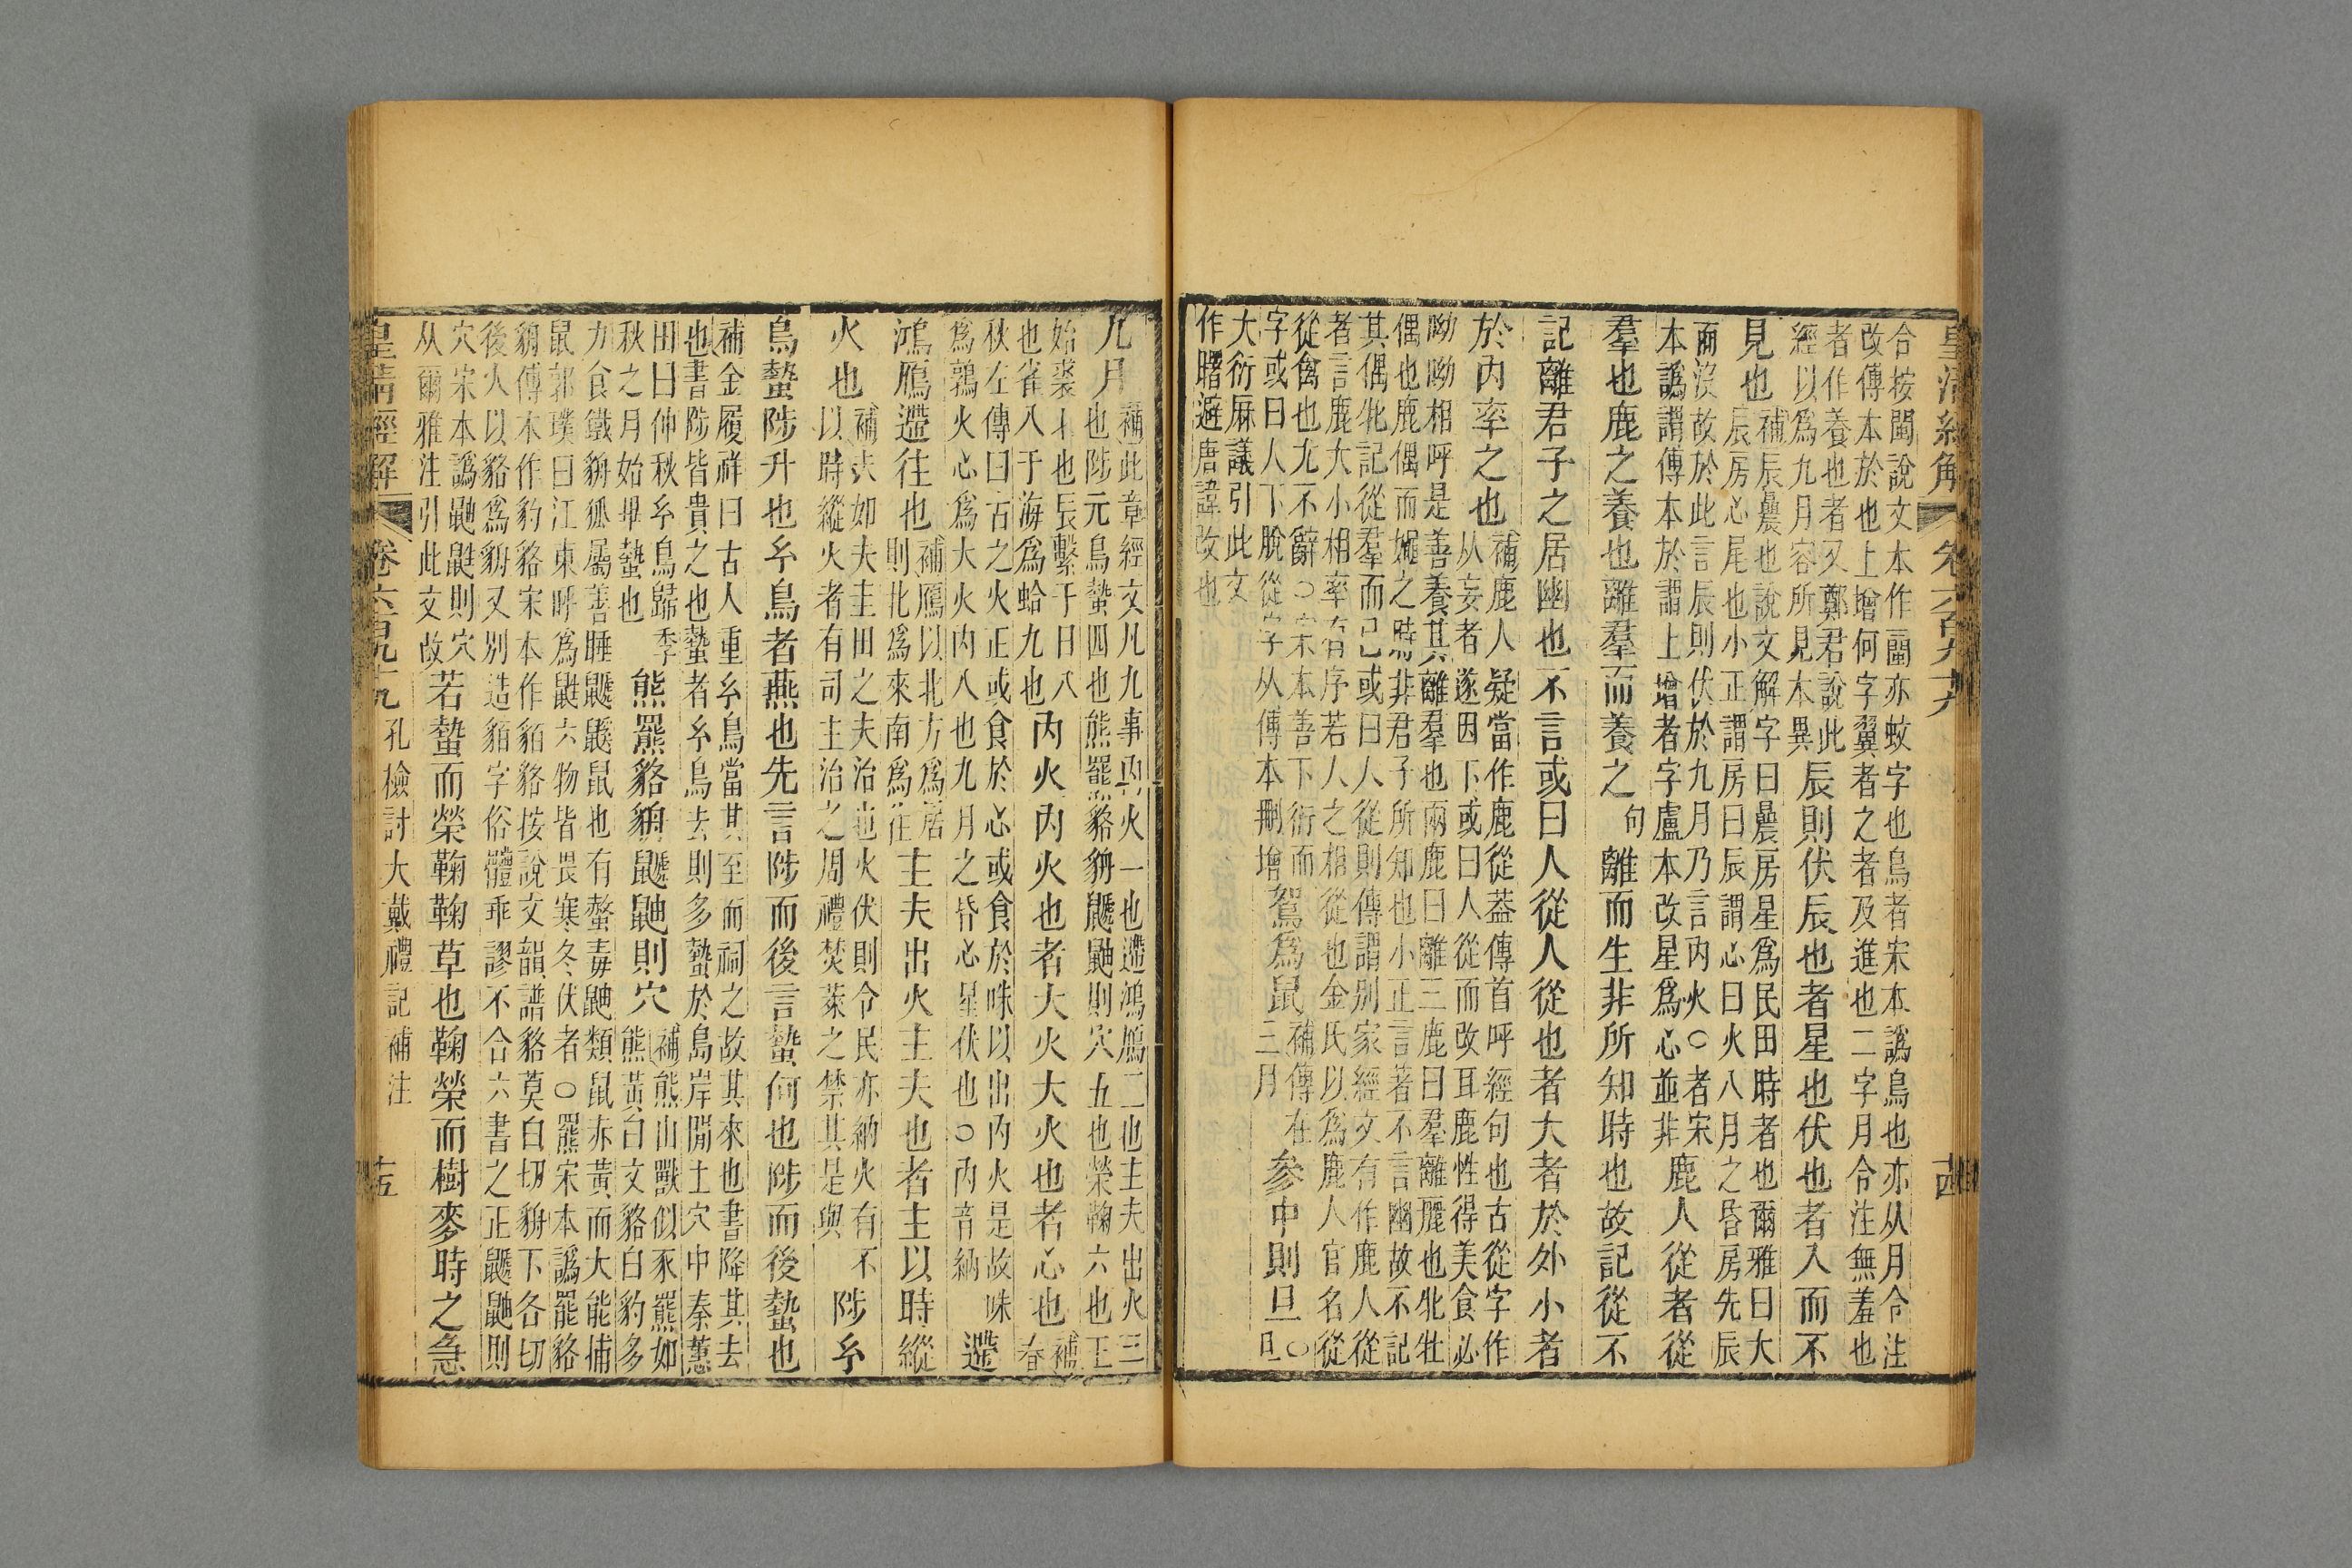 皇清經解 卷六百九十九 十四
合按聞說文本作閩亦蚊字也烏者宋本譌鳥也亦从月令注
改傳本於也上增何字翼者之者及進也二字月令注無羞也
者作養也者又鄭君說此
經以爲九月容所見本異
辰則伏辰也者星也伏也者入而不
見也
補辰䢅也說文解字曰䢅房星爲民田時者也爾雅曰大
辰房心尾也小正謂房曰辰謂心曰火八月之昏房先辰
而沒故於此言辰則伏於九月乃言內火○者宋
本譌謂傳本於謂上增者字盧本改星爲心並非
鹿人從者從
羣也鹿之養也離羣而養之
句
離而生非所知時也故記從不
記離君子之居幽也不言或曰人從人從也者大者於外小者
於內率之也
補鹿人疑當作鹿從葢傳首呼經句也古從字作
从妄者遂因下或曰人從而改耳鹿性得美食必
呦呦相呼是善養其離羣也兩鹿曰離三鹿曰羣離麗也牝牡
偶也鹿偶而媰之時非君子所知也小正言著不言幽故不記
其偶牝記從羣而已或曰人從則傳謂別家經文有作鹿人從
者言鹿大小相率有序若人之相從也金氏以爲鹿人官名從
從禽也尤不辭○宋本善下衍而
字或曰人下脫從字从傳本刪增
駕爲鼠
補傳在
三月
參中則旦
○
旦
大衍厤議引此文
作曙避唐諱改也
九月
補此章經文凡九事內火一也遰鴻鴈二也主夫出火三
也陟元鳥蟄四也熊羆貉貈鼶鼬則穴五也榮鞠六也王
始裘七也辰繫于日八
也雀入于海爲蛤九也
內火內火也者大火大火也者心也
補
春
秋左傳曰古之火正或食於心或食於咮以出內火是故咮
爲鶉火心爲大火內八也九月之昏心星伏也○內音納
遰
鴻鴈遰往也
補鴈以北方爲居
則北爲來南爲往
主夫出火主夫也者主以時縱
火也
補夫如夫圭田之夫治也火伏則令民亦納火有不
以時縱火者有司主治之周禮焚萊之禁其是與
陟玄
鳥蟄陟升也玄鳥者燕也先言陟而後言蟄何也陟而後蟄也
補金履祥曰古人重玄鳥當其至而祠之故其來也書降其去
也書陟皆貴之也蟄者玄鳥去則多蟄於島岸閒土穴中秦蕙
田曰仲秋玄鳥歸季
秋之月始畢蟄也
熊羆貉貈鼶鼬則穴
補熊山獸似豕羆如
熊黃白文貉白豹多
力食鐵貈狐屬善睡鼶鼷鼠也有螫毒鼬類鼠赤黃而大能捕
鼠郭璞曰江東呼爲鼪六物皆畏寒冬伏者○羆宋本譌罷貉
貈傳本作豹貉宋本作貊貉按說文韻譜貉莫白切貈下各切
後人以貉爲貈又別造貊字俗體乖謬不合六書之正鼶鼬則
穴宋本譌鼬鼪則穴
从爾雅注引此文改
若蟄而榮鞠鞠草也鞠榮而樹麥時之急
皇清經解 卷六百九十九 孔檢討大戴禮記補注 十五